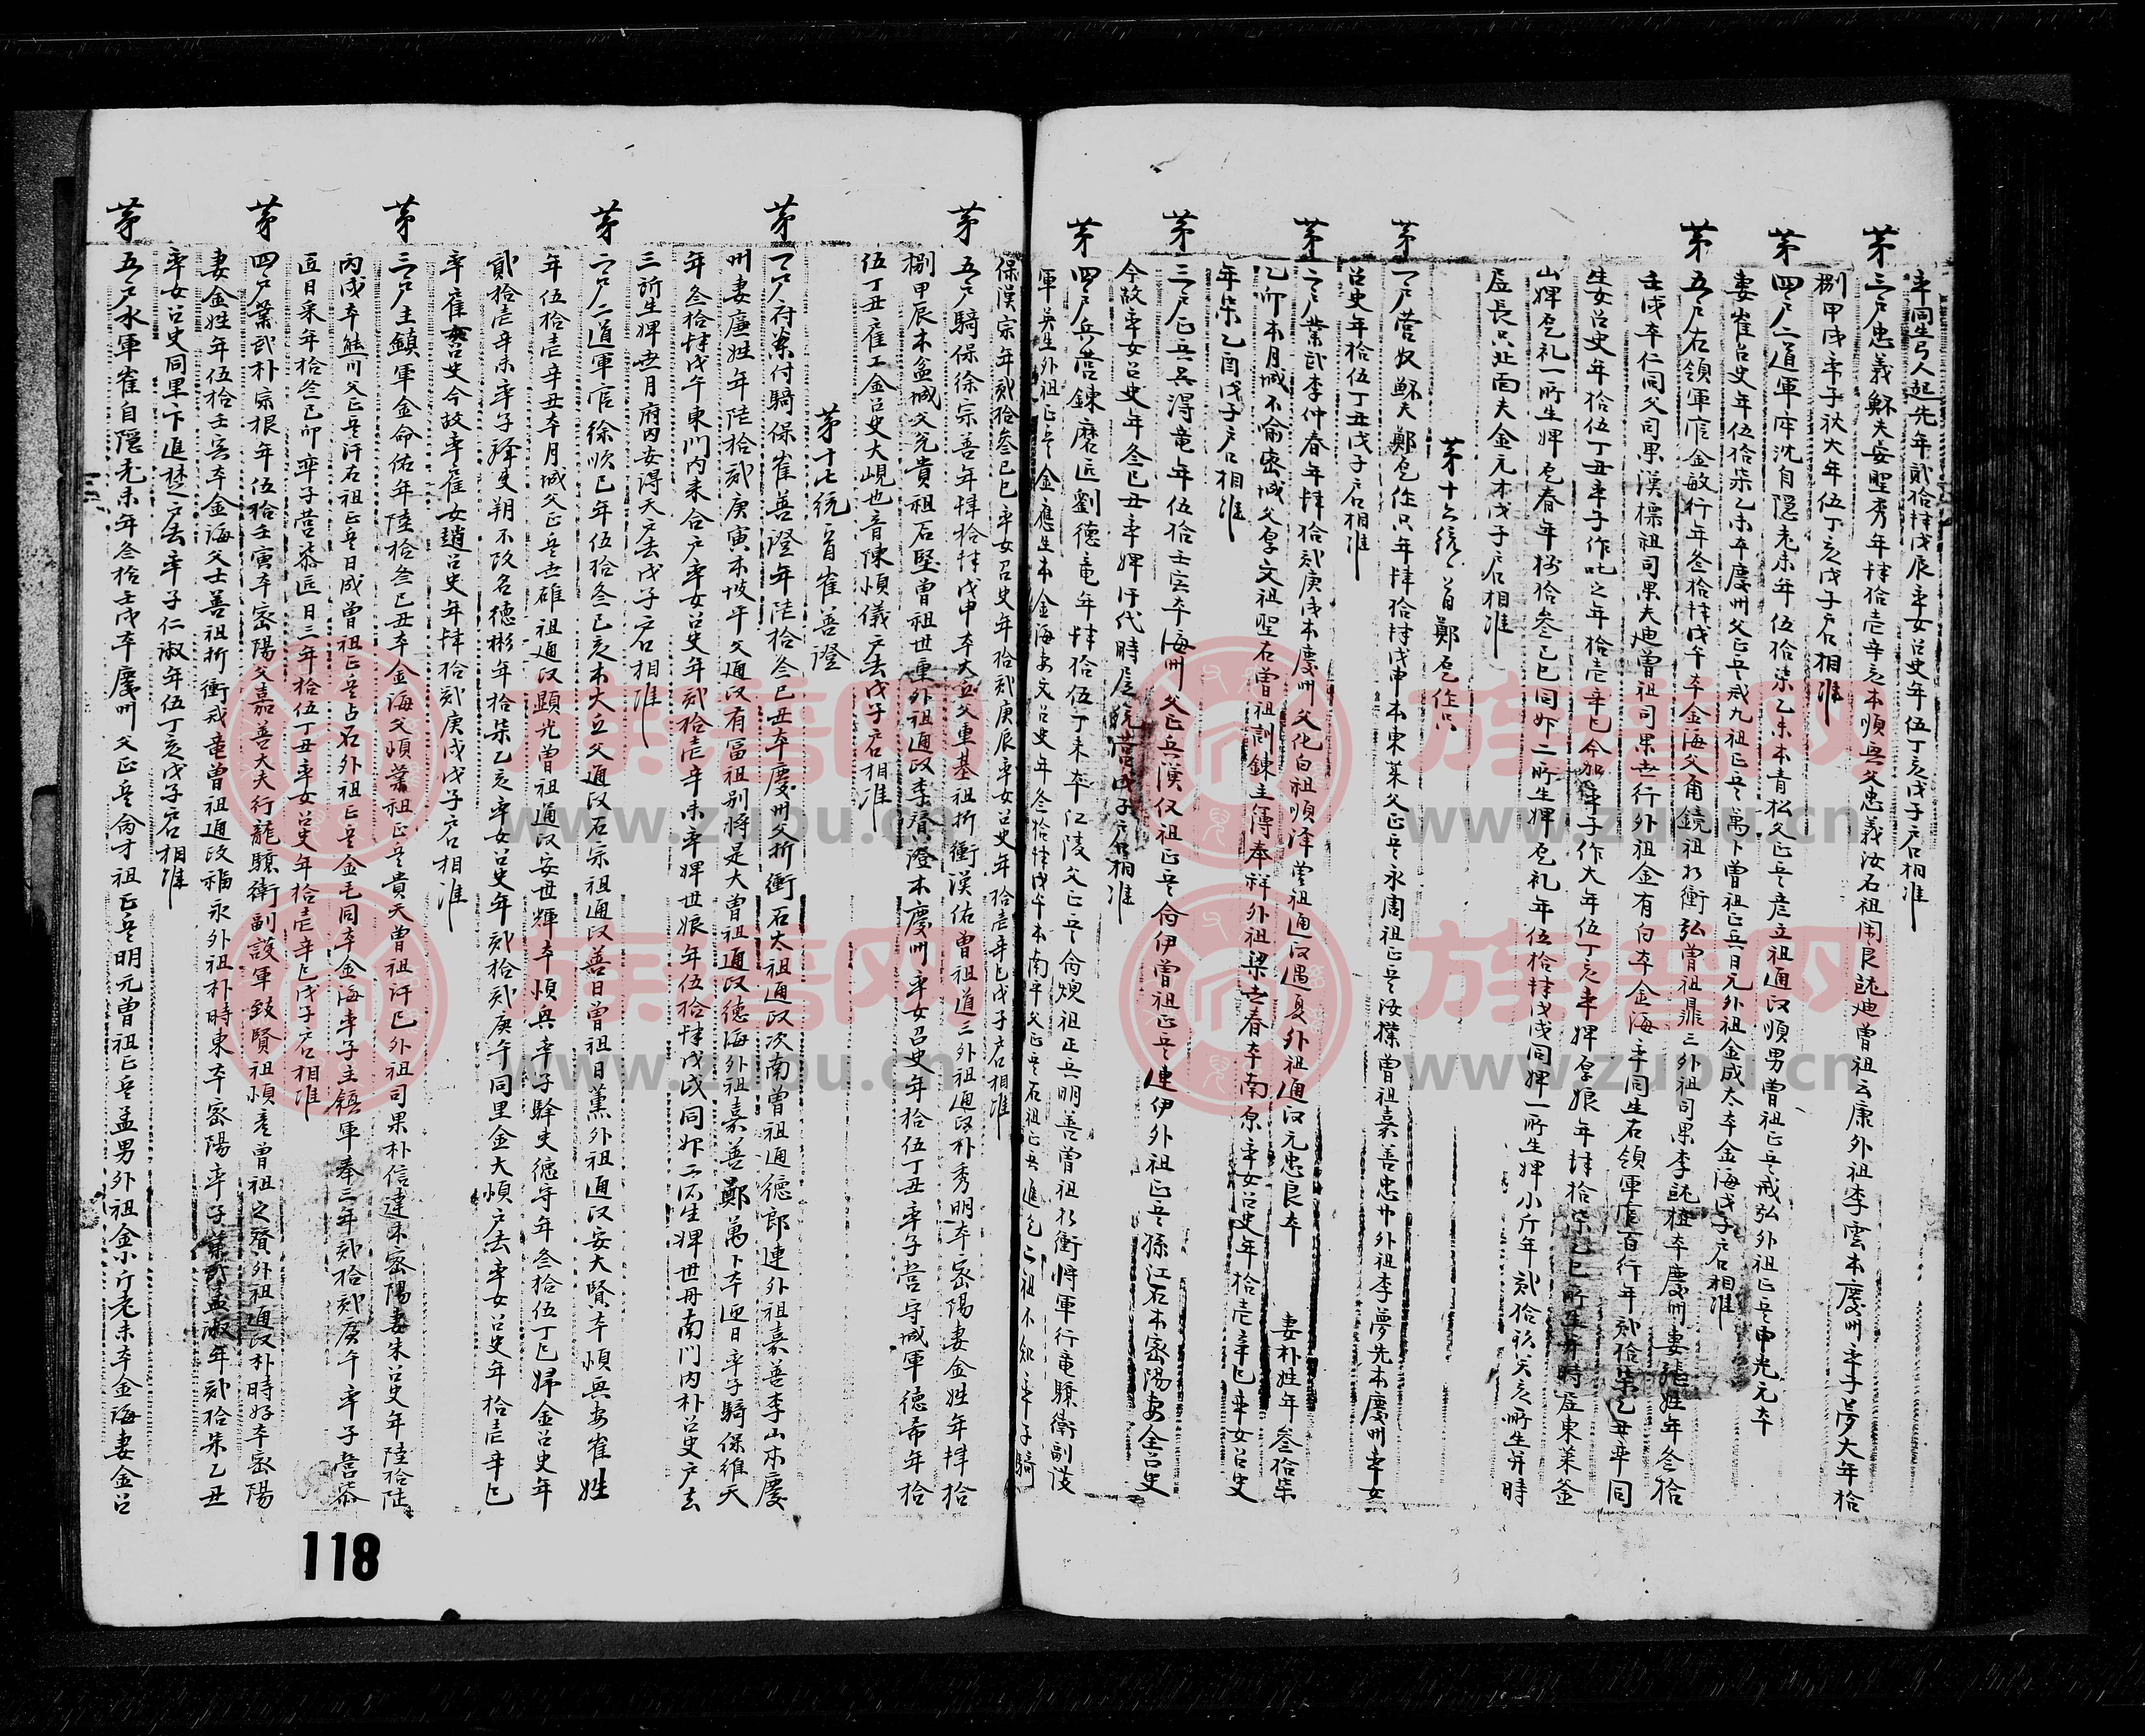 率同生弓人起先年貳拾肆戊辰率女召史年伍丁亥戊子戶相准
茅三戶忠義 夫安聖秀年肆拾壱辛亥本順興父忠義汝石祖 曾祖云康外祖李雲本慶州率子夢大年拾
捌甲戌率子狄大年伍丁亥戊子戶相准
茅四戶二道軍 沈自隠老未年伍拾柒乙未本青松父正兵彦立祖通政順男曾祖正兵戒弘外祖正兵申光元本
妻崔召史年伍拾柒乙未本慶州父正兵戒九祖正兵萬卜曾祖正兵日元外祖金成大本金海戊子戶相准
茅五戶右領軍官金敏行年叁拾肆戊午本金海父角鏡祖折衝弘曾祖鼎三外祖司果李 植本慶州妻張姓年叁拾
壬戌本仁同父司果漢標祖司果夫迪曾祖司果世行外祖金有白本金海率同生右領軍官百行年貳拾柒乙丑率同
生女召史年拾伍丁丑率子作 之年拾壱辛巳今加率子作大年伍丁亥率婢厚娘年肆拾柒乙巳所生并時居東萊金
山婢卮礼一所生婢卮春年 拾叁己巳同婢二所生婢卮礼年伍拾肆戊戌同婢一所生婢小斤年貳拾 癸亥所生并時
居長只北面夫金元才戊子戶相准
茅十六統首鄭卮作只
茅一戶營奴 夫鄭卮作只年肆拾肆戊申本東萊父正兵永周祖正兵汝 曾祖嘉善忠 外祖李夢先本慶州率女
召史年拾伍丁丑戊子戶相准
茅二戶業武李仲春年肆拾貳庚戌本慶州父化白祖順泽曾祖通政遇夏外祖通政元忠良本 妻朴姓年叁拾柒
乙卯本月城不喻密城父厚文祖聖石曾祖訓鍊主簿奉祥外祖梁世春本南原率女召史年拾壱辛巳率女召史
年柒乙酉戊子戶相准
茅三戶正兵吳得竜年伍拾壬寅本海州父正兵漢仅祖正兵尙伊曾祖正兵連伊外祖正兵孫江石本密陽妻金召史
今故率女召史年叁己丑率婢汗代時居統營戊子戶相准
茅四戶兵營鍊磨匠劉德竜年肆拾伍丁未本江陵父正兵尙煩祖正兵明善曾祖折衝將軍行竜驤衛副護
軍英生外祖正兵金應生本金海妻文召史年叁拾肆戊午本南平父正兵石祖正兵進乞二祖不知率子騎
保漢宗年貳拾叁己巳率女召史年拾貳庚辰率女召史年拾壱辛巳戊子戶相准
茅五戶騎保徐宗善年肆拾肆戊申本大丘父重基祖折衝漢佑曾祖道三外祖通政朴秀明本密陽妻金姓年肆拾
捌甲辰本盆城父光貴祖石堅曾祖世重外祖通政李賢澄本慶州率女召史年拾伍丁丑率子營守城軍德希年拾
伍丁丑雇工金召史大峴也音陳順儀戶去戊子戶相准
茅十七統首崔善證
茅一戶府案付騎保崔善證年陸拾叁己丑本慶州父折衝石太祖通政次南曾祖通德郎連外祖嘉善李山本慶
州妻廉姓年陸拾貳庚寅本坡平父通政有富祖别將是大曾祖通政德海外祖嘉善鄭萬卜本迎日率子騎保維天
年叁拾肆戊午東門内耒合戶率女召史年貳拾壱辛未率婢世娘年伍拾肆戊戌同婢二所生婢世丹南門内朴召史戶去
三所生婢世月府内安得天戶去戊子戶相准
茅二戶二道軍官徐順已年伍拾叁己亥本大丘父通政石宗祖通政善日曾祖日薰外祖通政安大賢本順興妻崔姓
年伍拾壱辛丑本月城父正兵世碓祖通政顯光曾祖通政安世輝本順興率子驛吏德守年叁拾伍丁巳婦金召史年
貳拾壱辛未率子驛吏翔不改名德彬年拾柒乙亥率女召史年貳拾貳庚午同里金大順戶去率女召史年拾壱辛巳
率雇女召史今故率雇女趙召史年肆拾貳庚戌戊子戶相准
茅三戶主鎮軍金命佑年陸拾叁己丑本金海父順業祖正兵貴天曾祖許巳外祖司果朴信達本密陽妻朱召史年陸拾陸
丙戌本熊川父正兵汗右祖正兵日成曾祖正兵占石外祖正兵金毛同本金海率子主鎮軍奉三年貳拾貳庚午率子營漆
匠日采年拾叁己卯率子營漆匠日三年拾伍丁丑率女召史年拾壱辛巳戊子戶相准
茅四戶業武朴宗根年伍拾壬寅本密陽父嘉善大夫行龍驤衛副護軍致賢祖順彦曾祖之賢外祖通政朴時好本密陽
妻金姓年伍拾壬寅本金海父士善祖折衝戒竜曾祖通政福永外祖朴時東本密陽率子業武孟淑年貳拾柒乙丑
率女召史同里卞進 戶去率子仁淑年伍丁亥戊子戶相准
茅五戶水軍崔自隠老未年叁拾壬戌本慶州父正兵尙才祖正兵明元曾祖正兵孟男外祖金小斤老未本金海妻金召
118
族譜网
www.zupu.cn
族譜网
www.zupu.cn
族譜网
www.zupu.cn
族譜网
www.zupu.cn